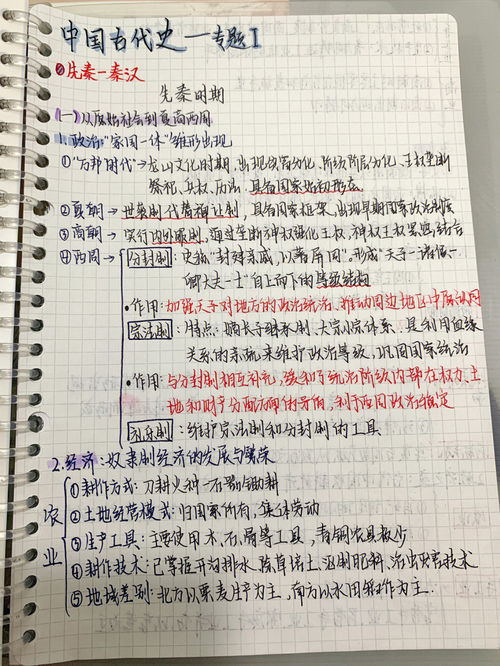 中国古代史—专题I
先秦—秦汉
先秦时期
(一)从原始社会到夏商西周
1.政治:"家国一体"雏形出现
①"万邦时代"→龙山文化时期,出现贫富分化,阶级阶层分化、王权垄断
祭祀、兵权、历法,具有国家初始形态
②夏朝→世袭制代替禅让制,具有国家框架,出现早期国家政治制度
③商朝→实行内外服制,通过垄断神权强化王权,神权王权紧密结合
④西周→
分封制:史称"封建亲戚,以藩屏周",形成"天子—诸侯—
卿大夫—士"自上而下的等级结构
·作用:加强天子对地方的政治统治,推动周边地区
宗法制:特点:嫡长子继承制,大宗小宗体系.是利用血缘
关系的亲疏来维护政治等级,巩固国家统治
·作用:与分封制相互补充,缓和了统治阶级内部在权力、土
地和财产分配方面的矛盾,利于西周政治稳定
礼乐制:维护宗法制和分封制的工具
2.经济:奴隶制经济的发展与繁荣
农业
①耕作方式:刀耕火种—石器锄耕
②土地经营模式:归国家所有,集体劳动
③生产工具:主要使用木、石、骨等工具,青铜农具极少
④耕作技术:已掌握开沟排水、除草培土、沤制肥料、治虫灭害技术
⑤地域差别:北方以粟麦生产为主,南方以水田稻作为主.